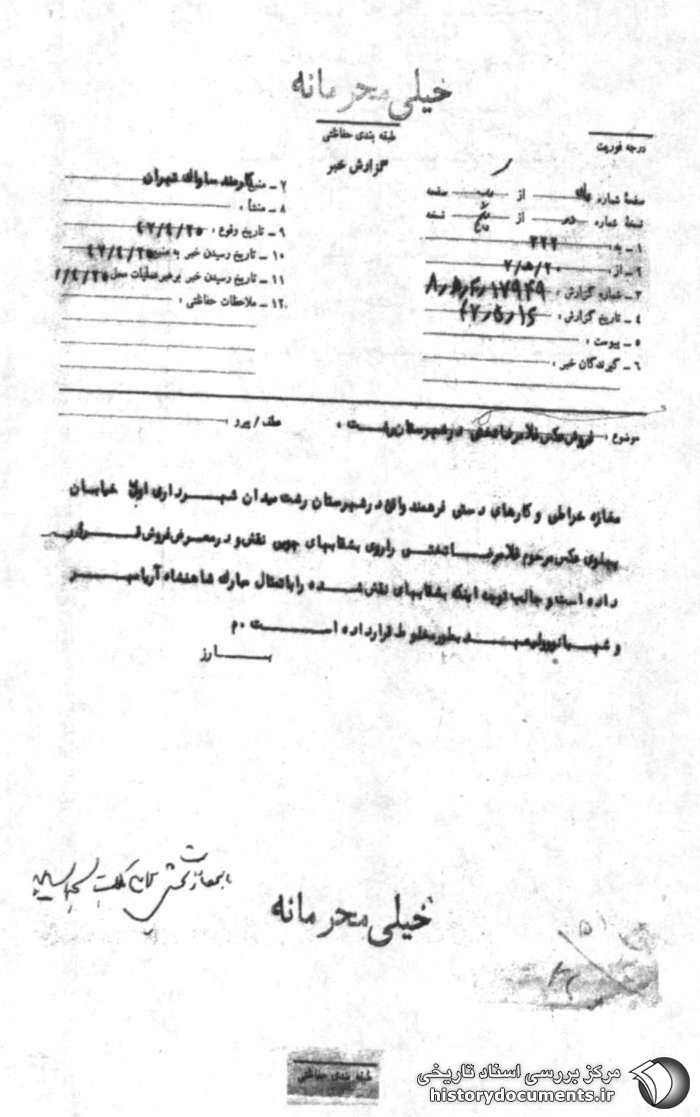 خیلی محرمانه
طبقه بندی حفاظتی
درجه فوریت
گزارش خبر
صفحهٔ شماره از صفحه
نسخهٔ شماره از نسخه
۱ – به ۳۲۲
۲ – از ۲۰/ه/۷
۳ – شماره گزارش :
۴ – تاریخ گزارش :
۵ – پیوست :
۶ – گیرندگان خبر :
۷ – منبع کارمند ساواک تهران
۸ – منشأ :
۹ – تاریخ وقوع : ۴۷/۴/۲۵
۱۰ – تاریخ رسیدن خبر به منبع ۴۷/۴/۲۵
۱۱ – تاریخ رسیدن خبر به رهبر عملیات محل
۱۲ – ملاحظات حفاظتی :
موضوع : فروش عکس غلامرضا تختی در شهرستان رشت .
عطف / پیرو
مغازه خراطی و کارهای دستی فرهمند واقع در شهرستان رشت میدان شهرداری اول خیابان
پهلوی عکس مرحوم غلامرضا تختی را روی بشقابهای چوبین نقش و در معرض فروش قرار
داده است و جالب توجه اینکه بشقابهای نقش شده را با تمثال مبارک شاهنشاه آریامهر
و شهبانو ولیعهد بطور مخلوط قرار داده است . م
بارز
خیلی محرمانه
طبقه بندی حفاظتی
مرکز بررسی اسناد تاریخی
historydocuments.ir